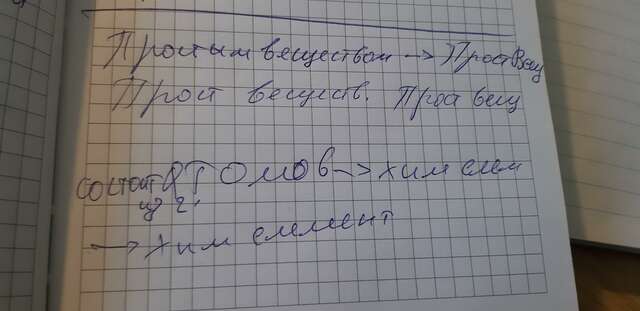 Простым веществом → ПростВещ
Прост веществ. Прост вещ
состоит Атомов → хим елем
из 2,
→ хим елемент